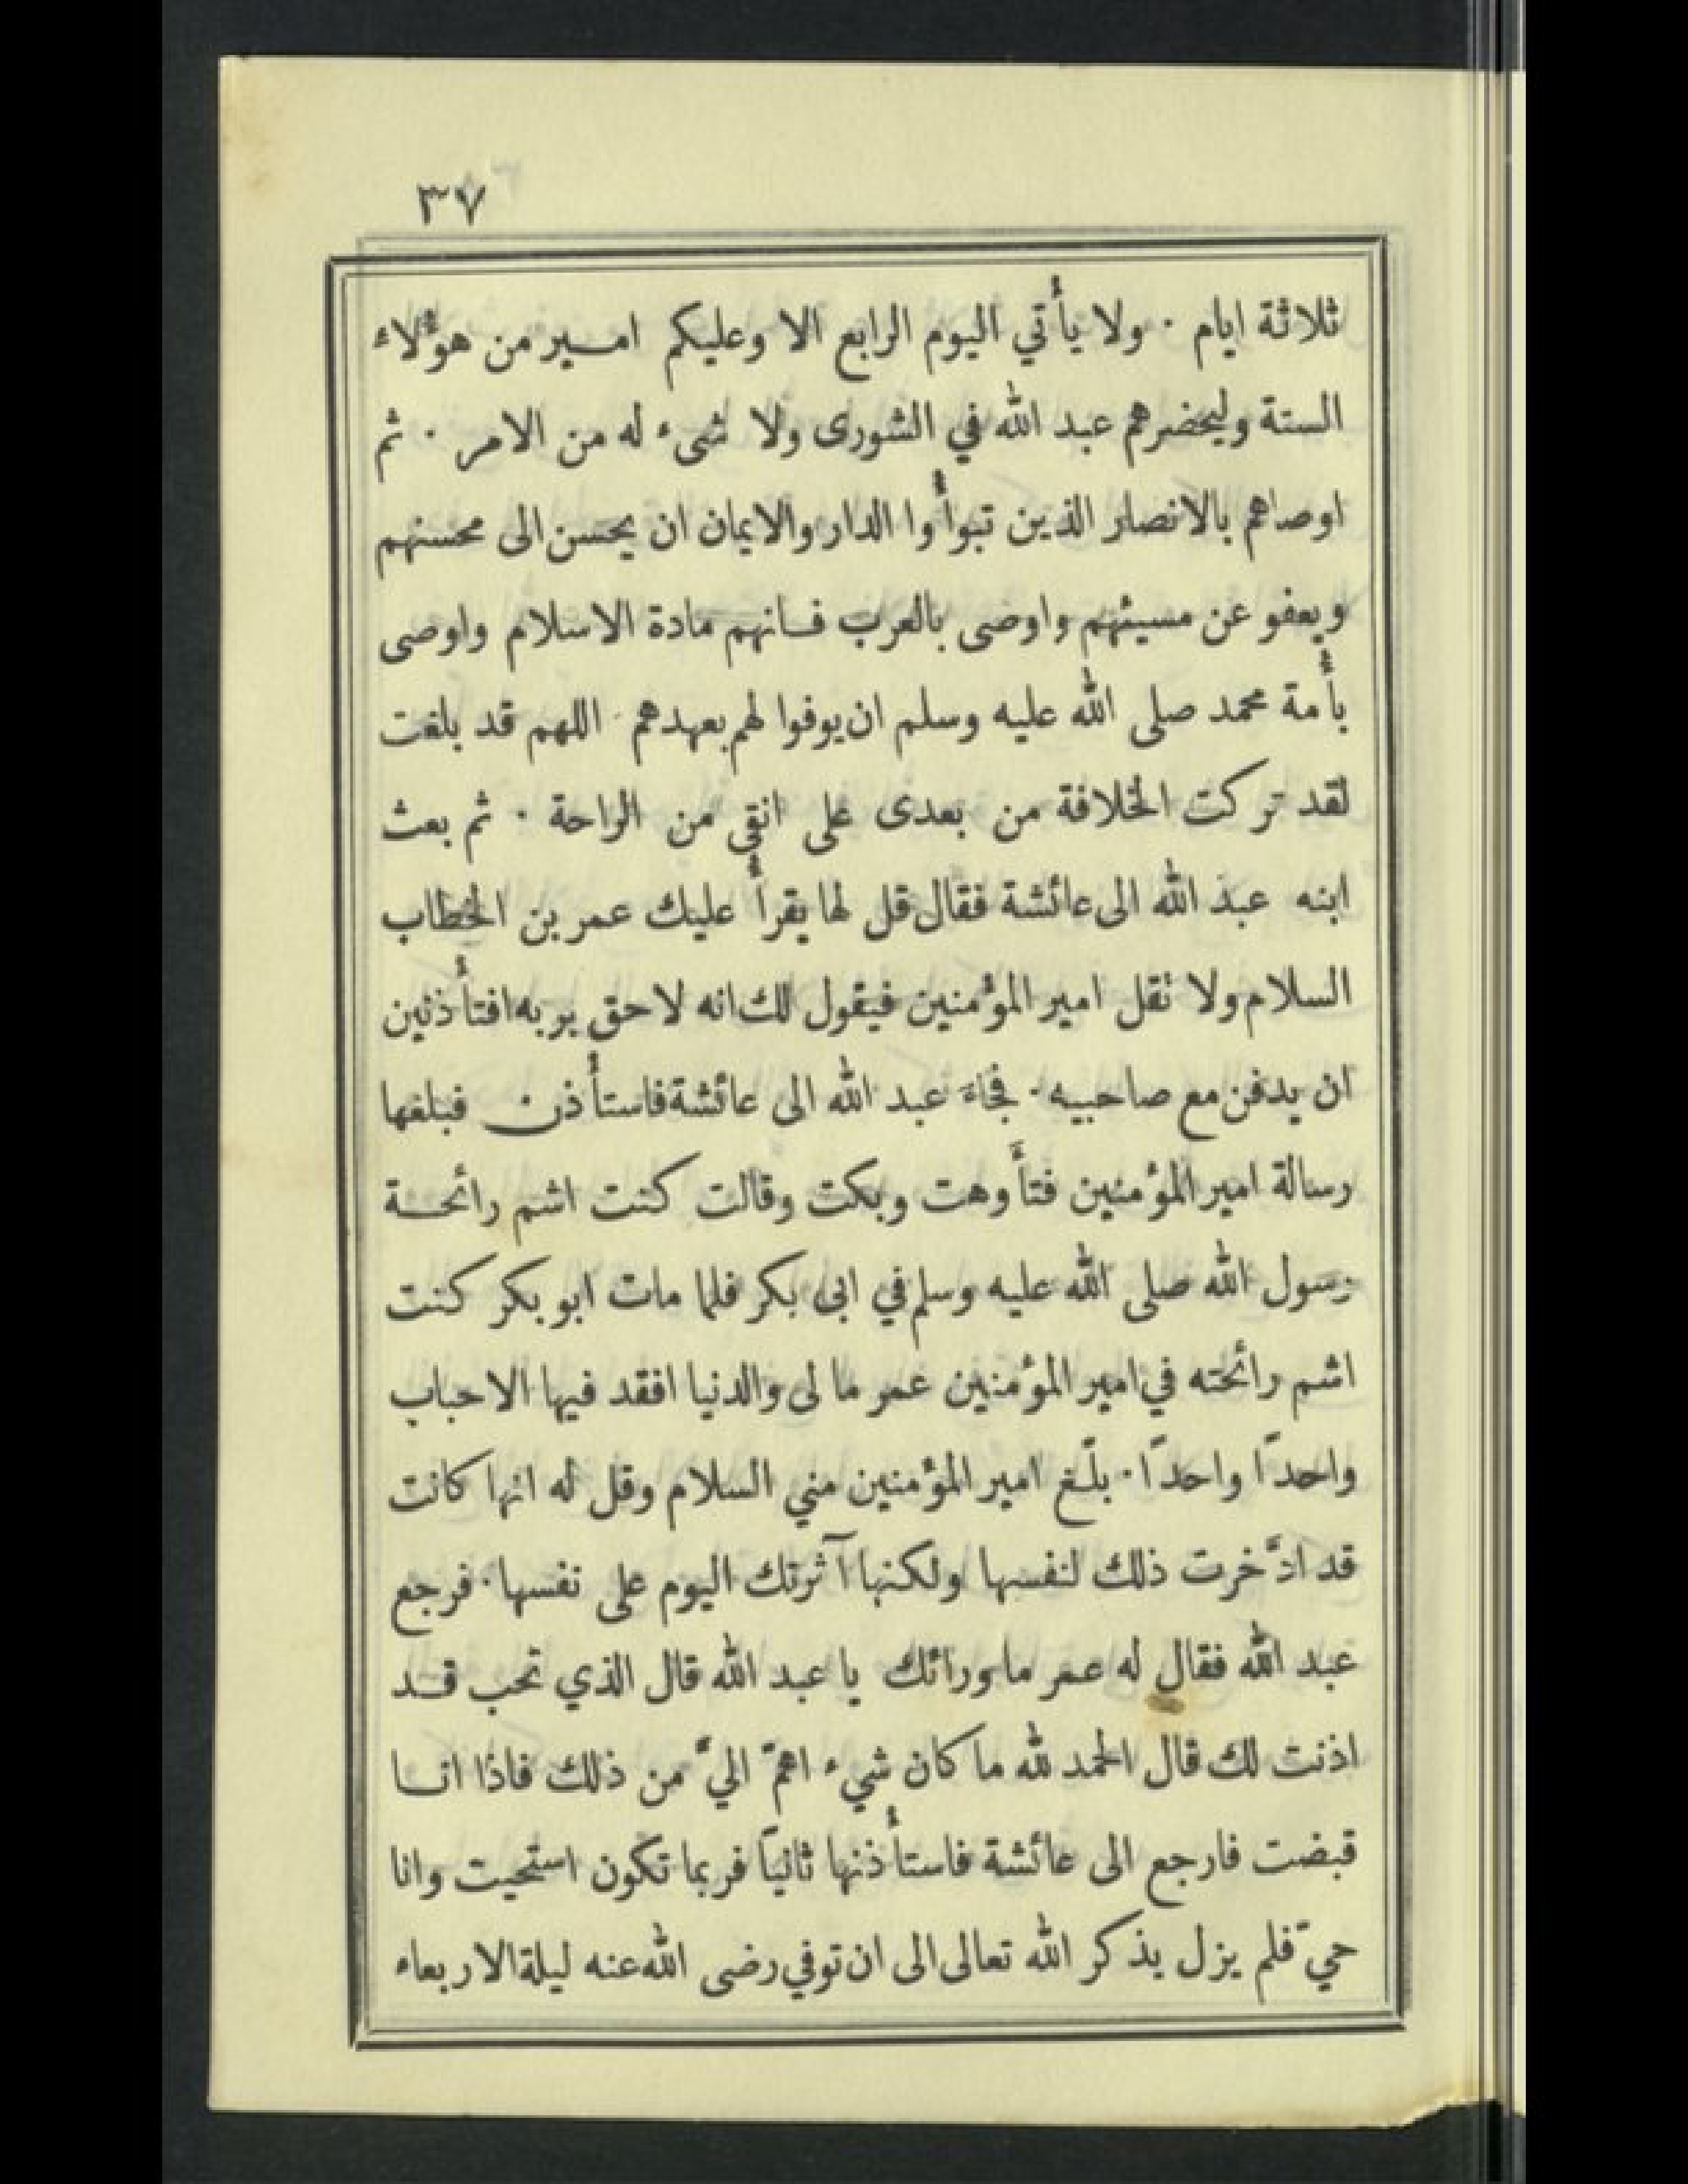 ٣٧
ثلاثة ايام · ولا يأتي اليوم الرابع الا وعليكم امير من هؤلاء
الستة وليحضرهم عبد الله في الشورى ولا شىء له من الامر · ثم
اوصاهم بالانصار الذين تبوأوا الدار والايمان ان يحسن الى محسنهم
ويعفو عن مسيئهم واوصى بالعرب فانهم مادة الاسلام واوصى
بأمة محمد صلى الله عليه وسلم ان يوفوا لهم بعهدهم · اللهم قد بلغت
لقد تركت الخلافة من بعدى على انقى من الراحة · ثم بعث
ابنه عبد الله الى عائشة فقال قل لها يقرأ عليك عمر بن الخطاب
السلام ولا نقل امير المؤمنين فيقول لك انه لاحق بربه افتأذنين
ان يدفن مع صاحبيه · فجاء عبد الله الى عائشة فاستأذن فبلغها
رسالة امير المؤمنين فتأوهت وبكت وقالت كنت اشم رائحة
رسول الله صلى الله عليه وسلم في ابى بكر فلما مات ابو بكر كنت
اشم رائحته في امير المؤمنين عمر ما لى والدنيا افقد فيها الاحباب
واحدًا واحدًا · بلّغ امير المؤمنين مني السلام وقل له انها كانت
قد ادَّخرت ذلك لنفسها ولكنها آثرتك اليوم على نفسها · فرجع
عبد الله فقال له عمر ما ورائك يا عبد الله قال الذي تحب قد
اذنت لك قال الحمد لله ما كان شيء اهمّ اليَّ من ذلك فاذا انا
قبضت فارجع الى عائشة فاستأذنها ثانياً فربما تكون استحيت وانا
حيّ فلم يزل يذكر الله تعالى الى ان توفي رضى الله عنه ليلة الاربعاء